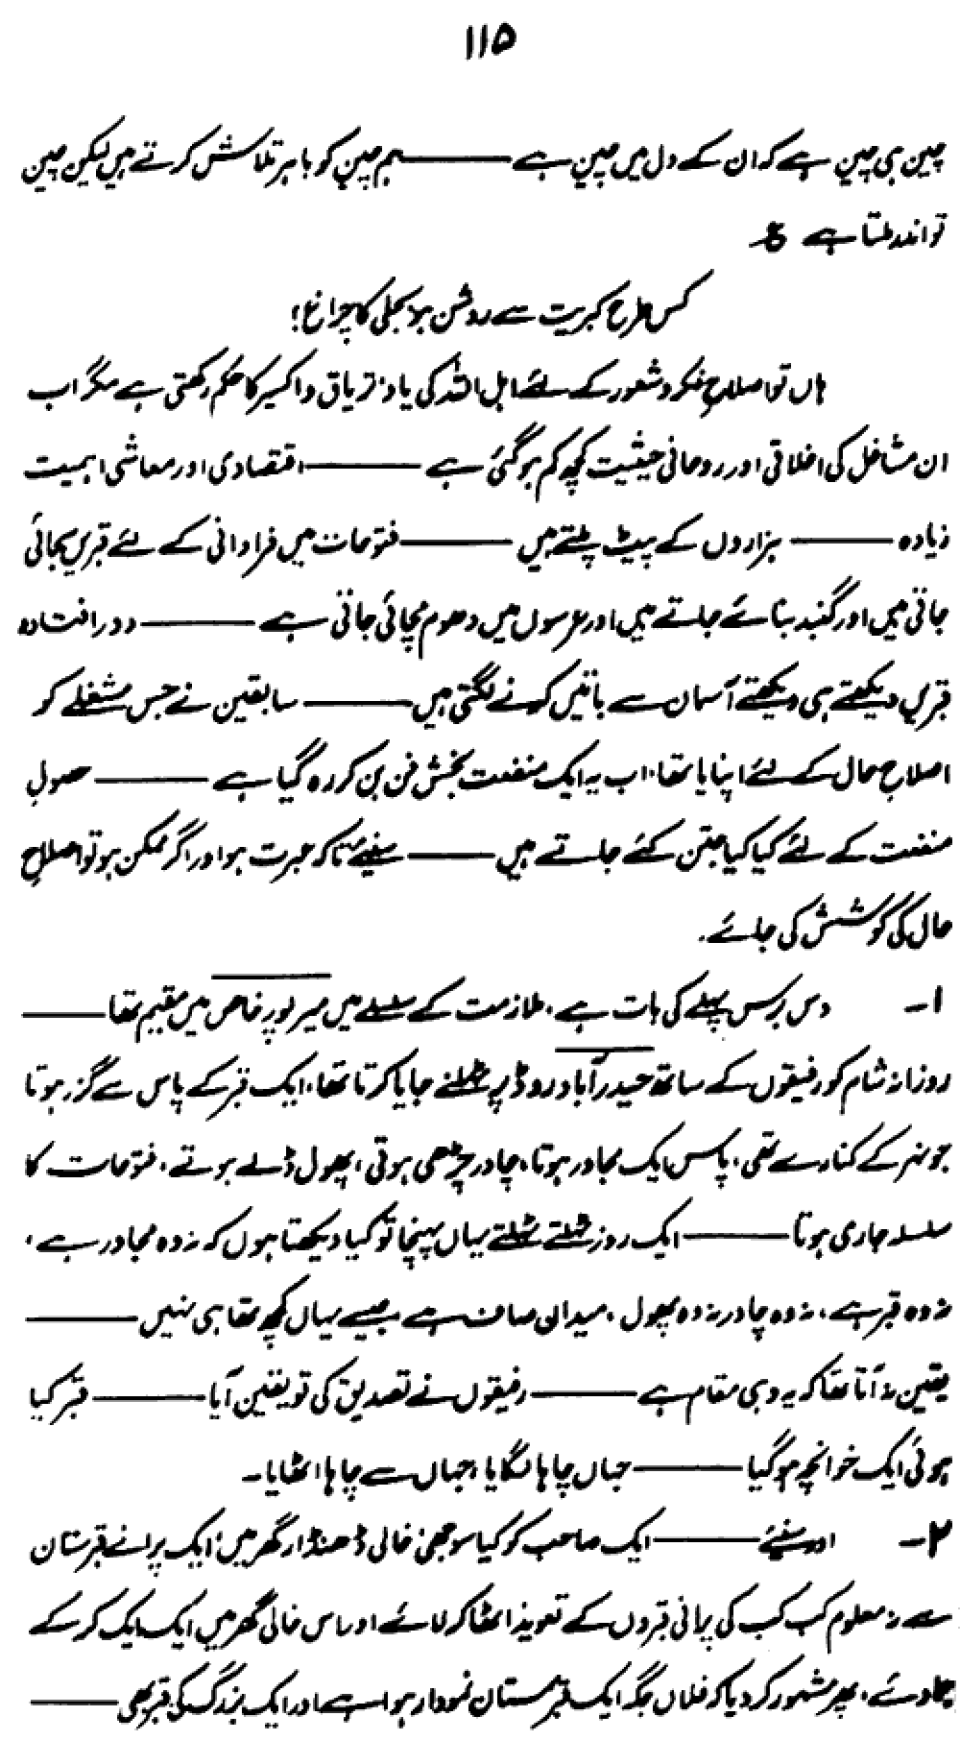 ۱۱۵
چین ہی چین ہے کہ ان کے دل میں چین ہے ——— ہم چین کو باہر تلاش کرتے ہیں لیکن چین
تو اندر ملتا ہے ع
کس طرح کبریت سے روشن ہو بجلی کا چراغ!
ہاں تو اصلاحِ فکر و شعور کے لئے اہل اللہ کی یاد تریاق و اکسیر کا حکم رکھتی ہے مگر اب
ان مشاغل کی اخلاقی اور روحانی حیثیت کچھ کم ہوگئی ہے ——— اقتصادی اور معاشی اہمیت
زیادہ ——— ہزاروں کے پیٹ پلتے ہیں ——— فتوحات میں فراوانی کے لئے قبریں سجائی
جاتی ہیں اور گنبد بنائے جاتے ہیں اور عرسوں میں دھوم مچائی جاتی ہے ——— دور افتادہ
قبریں دیکھتے ہی دیکھتے آسمان سے باتیں کرنے لگتی ہیں ——— سابقین نے جس مشغلے کو
اصلاحِ حال کے لئے اپنایا تھا، اب یہ ایک منفعت بخش فن بن کر رہ گیا ہے ——— حصولِ
منفعت کے لئے کیا کیا جتن کئے جاتے ہیں ——— سنیئے تاکہ عبرت ہو اور اگر ممکن ہو تو اصلاحِ
حال کی کوشش کی جائے۔
۱۔ دس برس پہلے کی بات ہے، ملازمت کے سلسلے میں میرپور خاص میں مقیم تھا ———
روزانہ شام کو رفیقوں کے ساتھ حیدرآباد روڈ پر ٹہلنے جایا کرتا تھا، ایک قبر کے پاس سے گزر ہوتا
جو نہر کے کنارے تھی، پاس ایک مجاور ہوتا، چادر چڑھی ہوتی، پھول ڈلے ہوتے، فتوحات کا
سلسلہ جاری ہوتا ——— ایک روز ٹہلتے ٹہلتے یہاں پہنچا تو کیا دیکھتا ہوں کہ نہ وہ مجاور ہے،
نہ وہ قبر ہے، نہ وہ چادر نہ وہ پھول، میدان صاف ہے جیسے یہاں کچھ تھا ہی نہیں ———
یقین نہ آتا تھا کہ یہ وہی مقام ہے ——— رفیقوں نے تصدیق کی تو یقین آیا ——— قبر کیا
ہوئی ایک خوانچہ ہوگیا ——— جہاں چاہا لگایا، جہاں سے چاہا اٹھایا۔
۲۔ اور سنیئے ——— ایک صاحب کو کیا سوجھی خالی ڈھنڈار گھر میں، ایک پرانے قبرستان
سے نہ معلوم کب کب کی پرانی قبروں کے تعویذ اٹھا کر لائے اور اس خالی گھر میں ایک ایک کر کے
جمادئے، پھر مشہور کر دیا کہ فلاں جگہ ایک قبرستان نمودار ہوا ہے اور ایک بزرگ کی قبر بھی ———